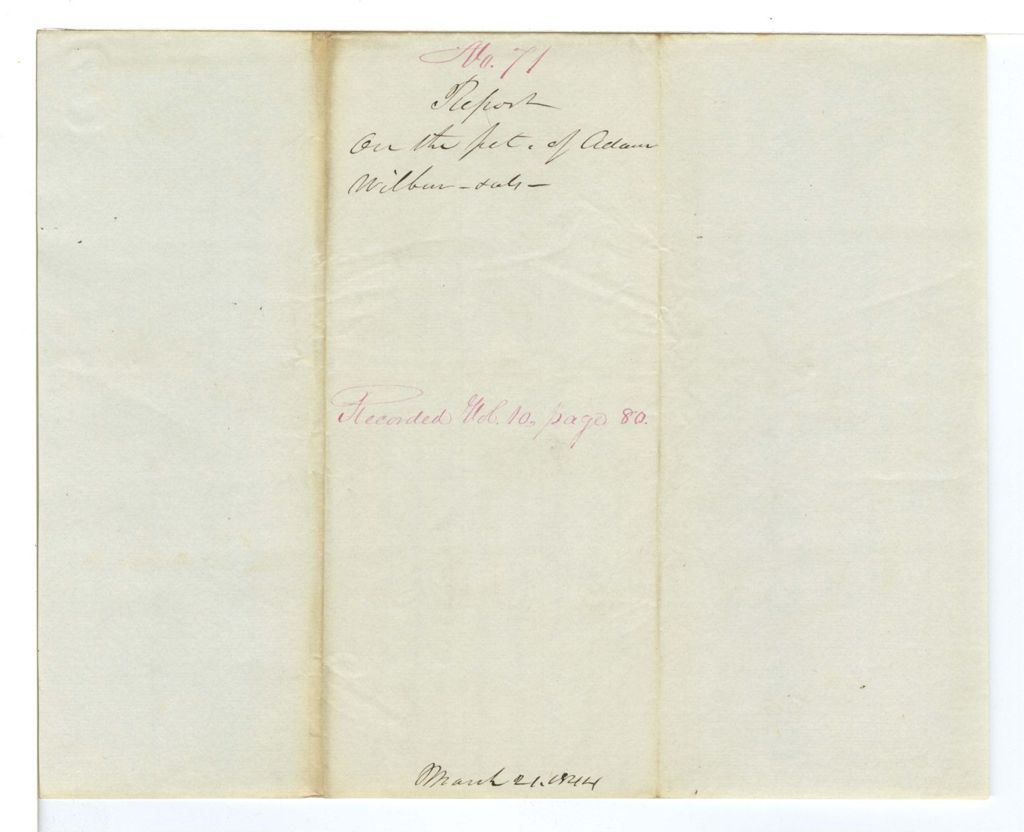 No. 71
Report
On the pet. of Adam
Wilbur
Recorded Vol. 10, page 80.
March 21. 1844